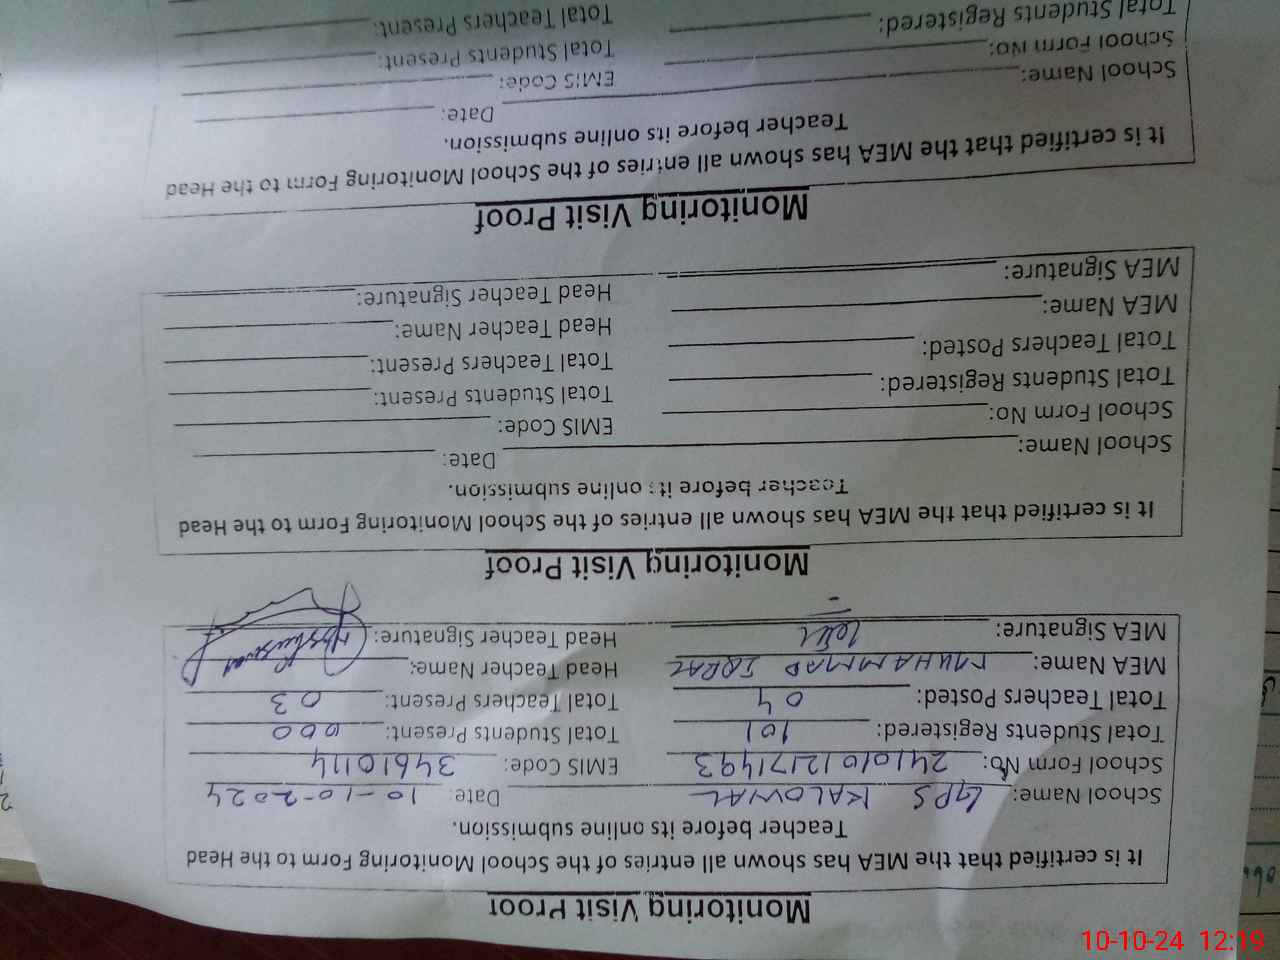 Monitoring Visit Proof
It is certified that the MEA has shown all entries of the School Monitoring Form to the Head
Teacher before its online submission.
School Name: GPS KALOWAL Date: 10-10-2024
School Form No: 24101012171493 EMIS Code: 34610114
Total Students Registered: 101 Total Students Present: 000
Total Teachers Posted: 04 Total Teachers Present: 03
MEA Name: MUHAMMAD IQBAL Head Teacher Name:
MEA Signature: Head Teacher Signature:
Monitoring Visit Proof
It is certified that the MEA has shown all entries of the School Monitoring Form to the Head
Teacher before its online submission.
School Name: Date:
School Form No: EMIS Code:
Total Students Registered: Total Students Present:
Total Teachers Posted: Total Teachers Present:
MEA Name: Head Teacher Name:
MEA Signature: Head Teacher Signature:
Monitoring Visit Proof
It is certified that the MEA has shown all entries of the School Monitoring Form to the Head
Teacher before its online submission.
School Name: Date:
School Form No: EMIS Code:
Total Students Registered: Total Students Present:
Total Teachers Present:
10-10-24 12:19